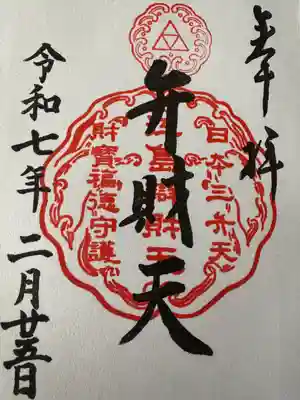 奉拝
日本三弁天
江島辯財天
財寶福徳守護
弁財天
令和七年 二月廿五日